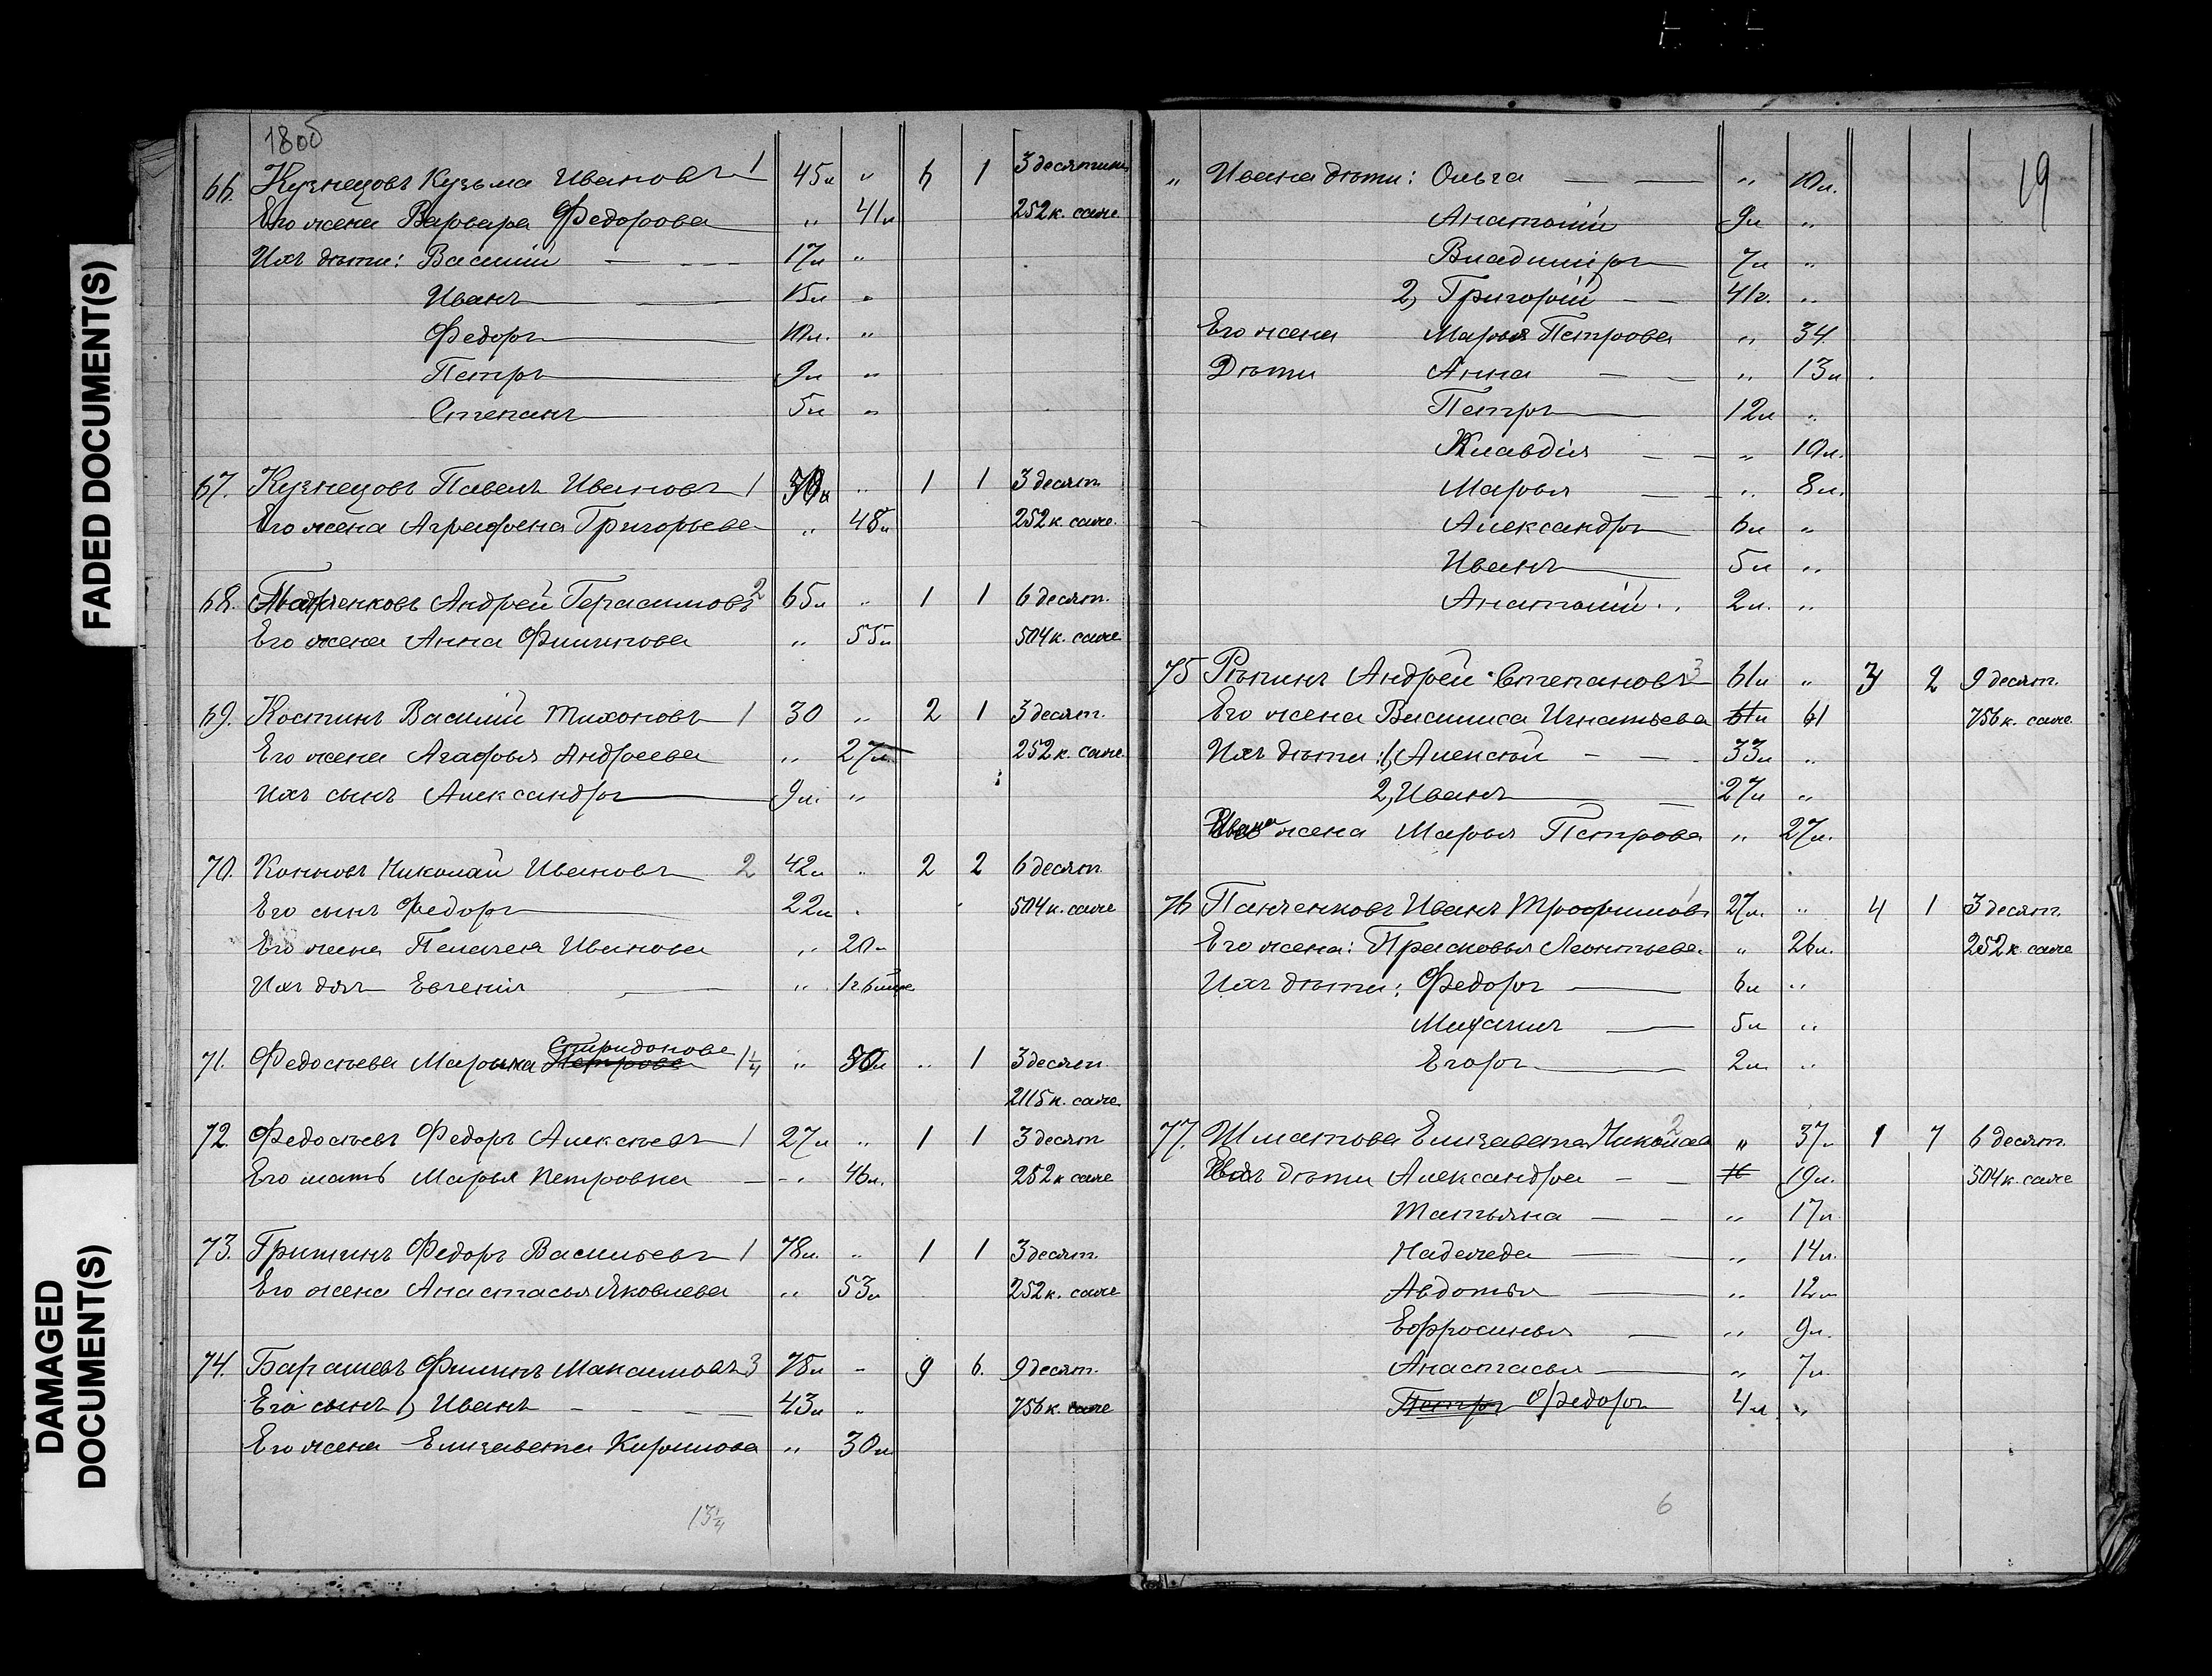 FADED DOCUMENT(S)
DAMAGED DOCUMENT(S)
66. Кузнецовъ Кузьма Ивановъ 1 45л „ 6 1 3 десятины
Его жена Варвара Федорова „ 41л 252 к. саже
Ихъ дѣти: Василій 17л „
Иванъ 15л „
Федоръ 10л. „
Петръ 9л „
Степанъ 5л „
67. Кузнецовъ Павелъ Ивановъ 1 „ 1 1 3 десят.
Его жена Аграфена Григорьева „ 48л 252 к. саже.
68. Андрей Герасимовъ 2 65л „ 1 1 6 десят.
Его жена Анна Филипова „ 55л 504 к. саже
69. Костинъ Василій Тихоновъ 1 30 „ 2 1 3 десят.
Его жена Агафья Андреева „ 27л. 252 к. саже
Ихъ сынъ Александръ 9л. „
70. Николай Ивановъ 2 42л „ 2 2 6 десят
Его сынъ Федоръ 22л „ 504 к. саже
Его жена Пелагея Иванова „ 20л
Ихъ доч Евгенія „ 1г 6 мце
71. Федосѣева Марьяна Петрова Спиридонова 1¼ „ 50л „ 1 3 десят.
2115 к. саже.
72. Федосѣевъ Федоръ Алексѣевъ 1 27л „ 1 1 3 десят
Его мать Марья Петровна „ 46л. 252 к саже
73. Гришинъ Федоръ Васильевъ 1 78л. „ 1 1 3 десят.
Его жена Анастасья Яковлева „ 53л 252 к. саже
74. Барашевъ Филипъ Максимовъ 3 75л „ 9 6. 9 десят.
Его сынъ 1) Иванъ 43л „ 756 к. саже
Его жена Елизавета Кирилова „ 30л
13¼
19
„ Ивана дѣти: Ольга „ 10л.
Анатолій 9л „
Владиміръ 7л „
2, Григорій 41г. „
Его жена Марья Петрова „ 34
Дѣти Анна „ 13л
Петръ 12л „
Клавдія „ 10л.
Марья „ 8л.
Александръ 6л „
Иванъ 5л „
Анатолій 2л. „
75 Рѣпинъ Андрей Степановъ 3 61л „ 3 2 9 десят.
Его жена Василиса Игнатьева 61л 61 756 к. саже
Ихъ дѣти: 1, Алексѣй 33л „
2, Иванъ 27л „
Ивана жена Марья Петрова „ 27л.
76 Панченковъ Иванъ Трофимовъ 27л. „ 4 1 3 десят.
Его жена: Прасковья Леонтьева „ 26л. 252 к. саже
Ихъ дѣти: Федоръ 6л „
Михаилъ 5л „
Егоръ 2л „
77. Шматова Елизавета Николаев 2 „ 37л 1 7 6 десят.
дѣти Александра 19л. 504 к. саже
Татьяна „ 17л
Надежда „ 14л.
Авдотья „ 12л
Ефросинья „ 9л.
Анастасья „ 7л.
Петръ Федоръ 4л „
6